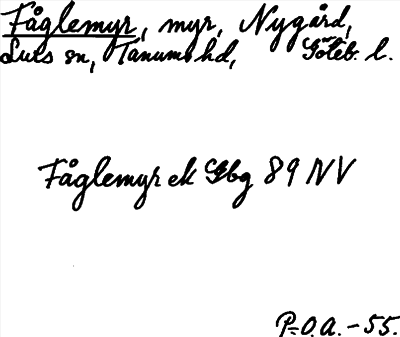 Fåglemyr, myr, Nygård,
Lurs sn, Tanums hd, Göteb. l.
Fåglemyr ek Gbg 89 NV
P-O.A. -55.